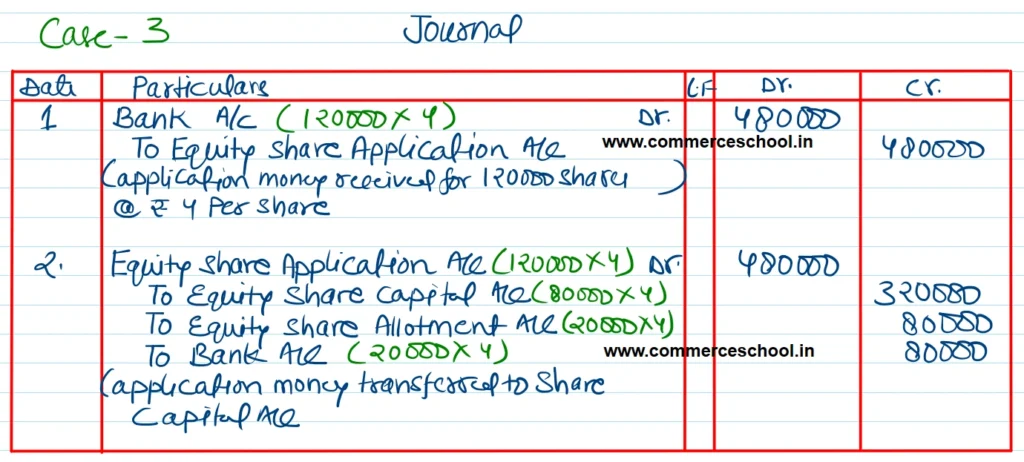 Case-3 Journal
Date Particulars L.F Dr. Cr.
1 Bank A/c (120000×4) Dr. 480000
To Equity Share Application A/c www.commerceschool.in 480000
(application money received for 120000 share)
@ ₹ 4 Per share
2. Equity Share Application A/c (120000×4) Dr. 480000
To Equity Share Capital A/c (80000×4) 320000
To Equity Share Allotment A/c (20000×4) 80000
To Bank A/c (20000×4) www.commerceschool.in 80000
(application money transferred to Share
Capital A/c